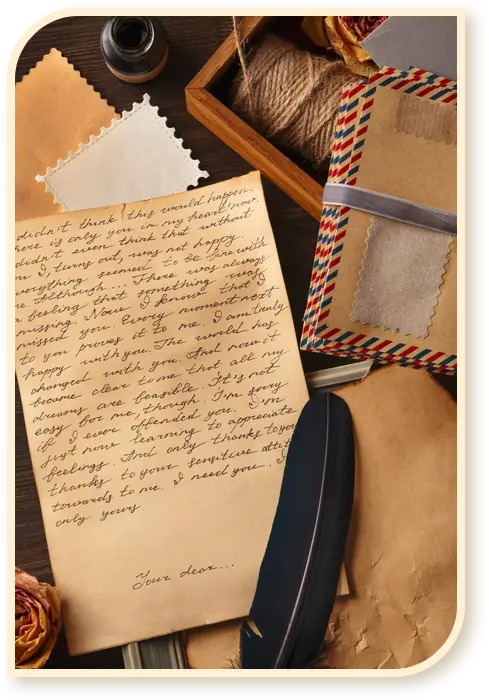 didn't think this would happen.
here is only you in my heart now.
didn't even think that without
I, turns out, was not happy.
everything seemed to be fine with
me. Although... There was always
a feeling that something was
missing. Now I know that I
missed you. Every moment next
to you proves it to me. I am truly
happy with you. The world has
changed with you. And now it
became clear to me that all my
dreams are feasible. It's not
easy for me, though. I'm sorry
if I ever offended you. I'm
just now learning to appreciate
feelings. And only thanks to you
thanks to your sensitive
towards to me. I need you. I
only yours.
Your dear...